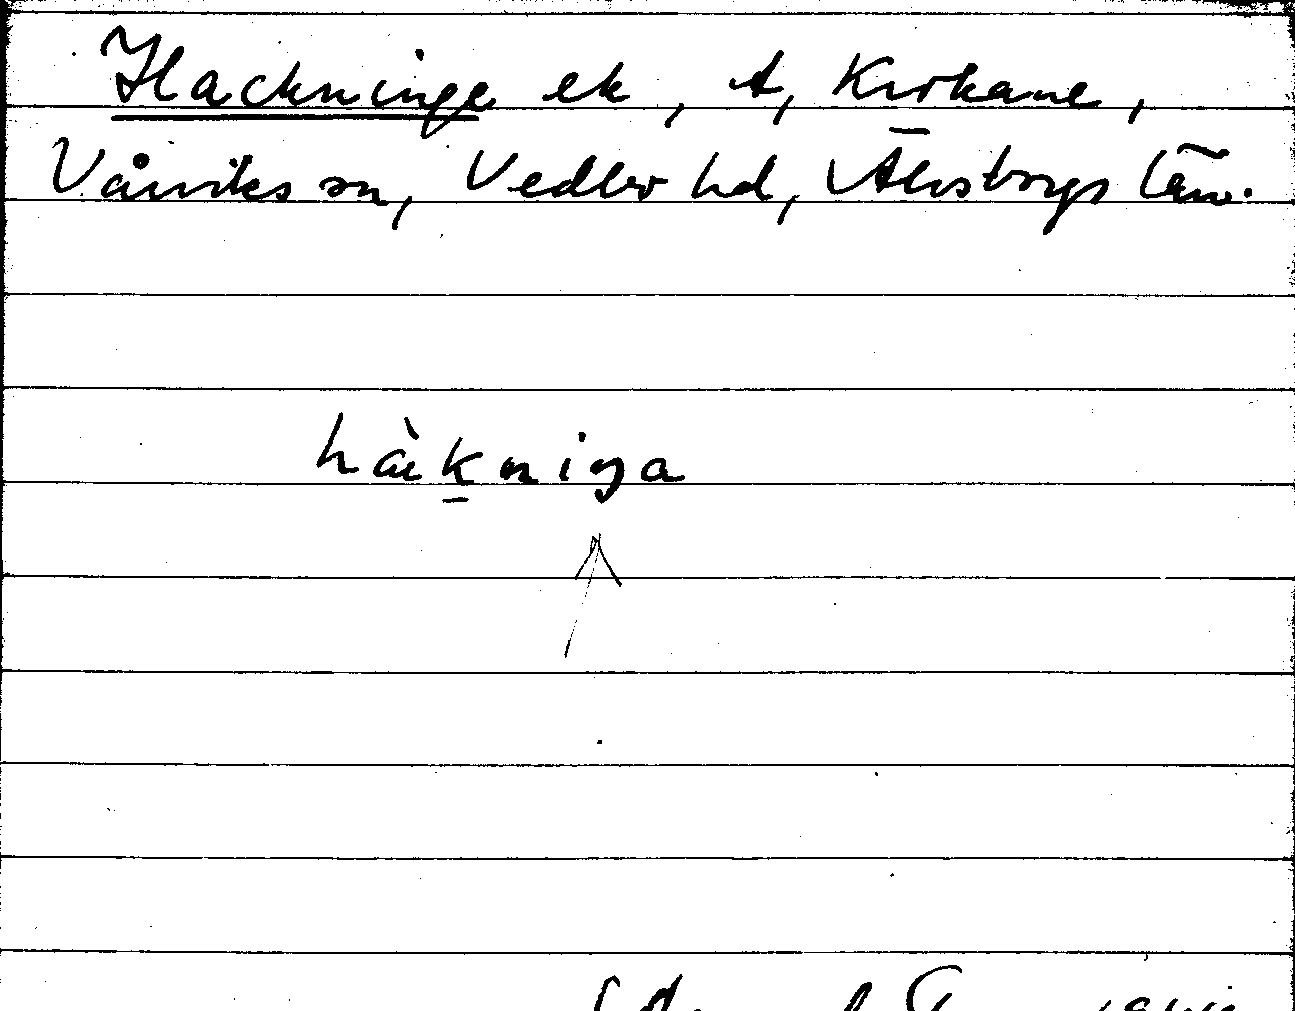 Hackninge ek, A, Krokane,
Vårviks sn, Vedbo hd, Älvsborgs län.
hàk̠niŋa